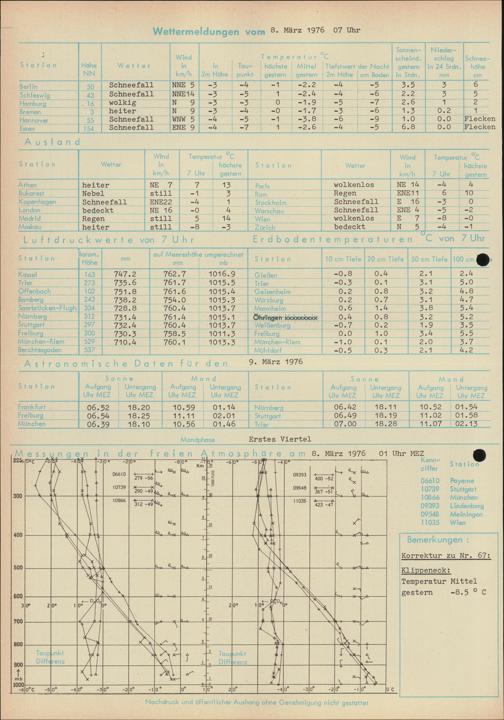 Wettermeldungen vom 8. März 1976 07 Uhr
Station Höhe NN Wetter Wind in km/h Temperatur °C Sonnenscheind. gestern in Stdn. Niederschlag in 24 Stdn. mm Schneehöhe cm
in 2m Höhe Taupunkt höchste gestern Mittel gestern Tiefstwert der Nacht 2m Höhe am Boden
Berlin 50 Schneefall NNE 5 -3 -4 -1 -2.2 -4 -5 3.5 3 6
Schleswig 43 Schneefall NNE14 -3 -5 1 -2.4 -4 -6 2.2 3 5
Hamburg 16 wolkig N 9 -3 -3 0 -1.9 -5 -7 2.6 1 2
Bremen 3 heiter N 9 -3 -4 -0 -1.7 -3 -6 1.3 0.2 1
Hannover 55 Schneefall WNW 5 -4 -5 -1 -3.8 -6 -9 1.0 0.0 Flecken
Essen 154 Schneefall ENE 9 -4 -7 1 -2.6 -4 -5 6.8 0.0 Flecken
Ausland
Station Wetter Wind in km/h Temperatur °C 7 Uhr höchste gestern Station Wetter Wind in km/h Temperatur °C 7 Uhr höchste gestern
Athen heiter NE 7 7 13 Paris wolkenlos NE 14 -4 4
Bukarest Nebel still -1 3 Rom Regen ENE11 6 10
Kopenhagen Schneefall ENE22 -4 1 Stockholm Schneefall E 16 -3 0
London bedeckt NE 16 -0 4 Warschau Schneefall ENE 4 -5 -2
Madrid Regen still 5 14 Wien wolkenlos E 7 -8 -0
Moskau heiter still -8 -3 Zürich bedeckt N 5 -4 -1
Luftdruckwerte von 7 Uhr Erdbodentemperaturen °C von 7 Uhr
Station Barom. Höhe mm auf Meereshöhe umgerechnet mm mb Station 10 cm Tiefe 20 cm Tiefe 50 cm Tiefe 100 cm
Kassel 163 747.2 762.7 1016.9 Gießen -0.8 0.4 2.1 2.4
Trier 273 735.6 761.7 1015.5 Trier -0.3 0.1 3.1 5.0
Offenbach 102 751.8 761.6 1015.4 Geisenheim 0.2 0.8 3.2 4.8
Bamberg 243 738.2 754.0 1015.3 Würzburg 0.2 0.7 3.1 4.7
Saarbrücken-Flugh. 324 728.8 760.4 1013.7 Mannheim 0.6 1.4 3.8 5.4
Nürnberg 312 731.4 761.4 1015.1 Öhringen xxxxxxxxx 0.4 0.8 3.2 5.2
Stuttgart 297 732.4 760.4 1013.7 Weißenburg -0.7 0.2 1.9 3.5
Freiburg 300 730.3 758.5 1011.3 Freiburg 0.0 1.0 3.4 5.5
München-Riem 529 710.4 760.1 1013.3 München-Riem -1.0 0.1 2.0 3.7
Berchtesgaden 537 Mühldorf -0.5 0.3 2.1 4.2
Astronomische Daten für den 9. März 1976
Station Sonne Mond Station Sonne Mond
Aufgang Uhr MEZ Untergang Uhr MEZ Aufgang Uhr MEZ Untergang Uhr MEZ Aufgang Uhr MEZ Untergang Uhr MEZ Aufgang Uhr MEZ Untergang Uhr MEZ
Frankfurt 06.52 18.20 10.59 01.14 Nürnberg 06.42 18.11 10.52 01.54
Freiburg 06.54 18.25 11.11 02.01 Stuttgart 06.49 18.19 11.02 01.58
München 06.39 18.10 10.56 01.46 Trier 07.00 18.28 11.07 02.13
Mondphase Erstes Viertel
Messungen in der freien Atmosphäre am 8. März 1976 01 Uhr MEZ
Kennziffer Station
06610 Payerne
10739 Stuttgart
10866 München
09393 Lindenberg
09548 Meiningen
11035 Wien
06610 279 -56
10739 290 -49
10866 312 -49
09393 400 -52
09548 367 -51
11035 423 -47
300
400
500
600
700
800
900
1000
mb
Taupunkt Differenz
Taupunkt Differenz
Bemerkungen:
Korrektur zu Nr. 67:
Klippeneck:
Temperatur Mittel
gestern -8.5 ° C
Nachdruck und öffentlicher Aushang ohne Genehmigung nicht gestattet